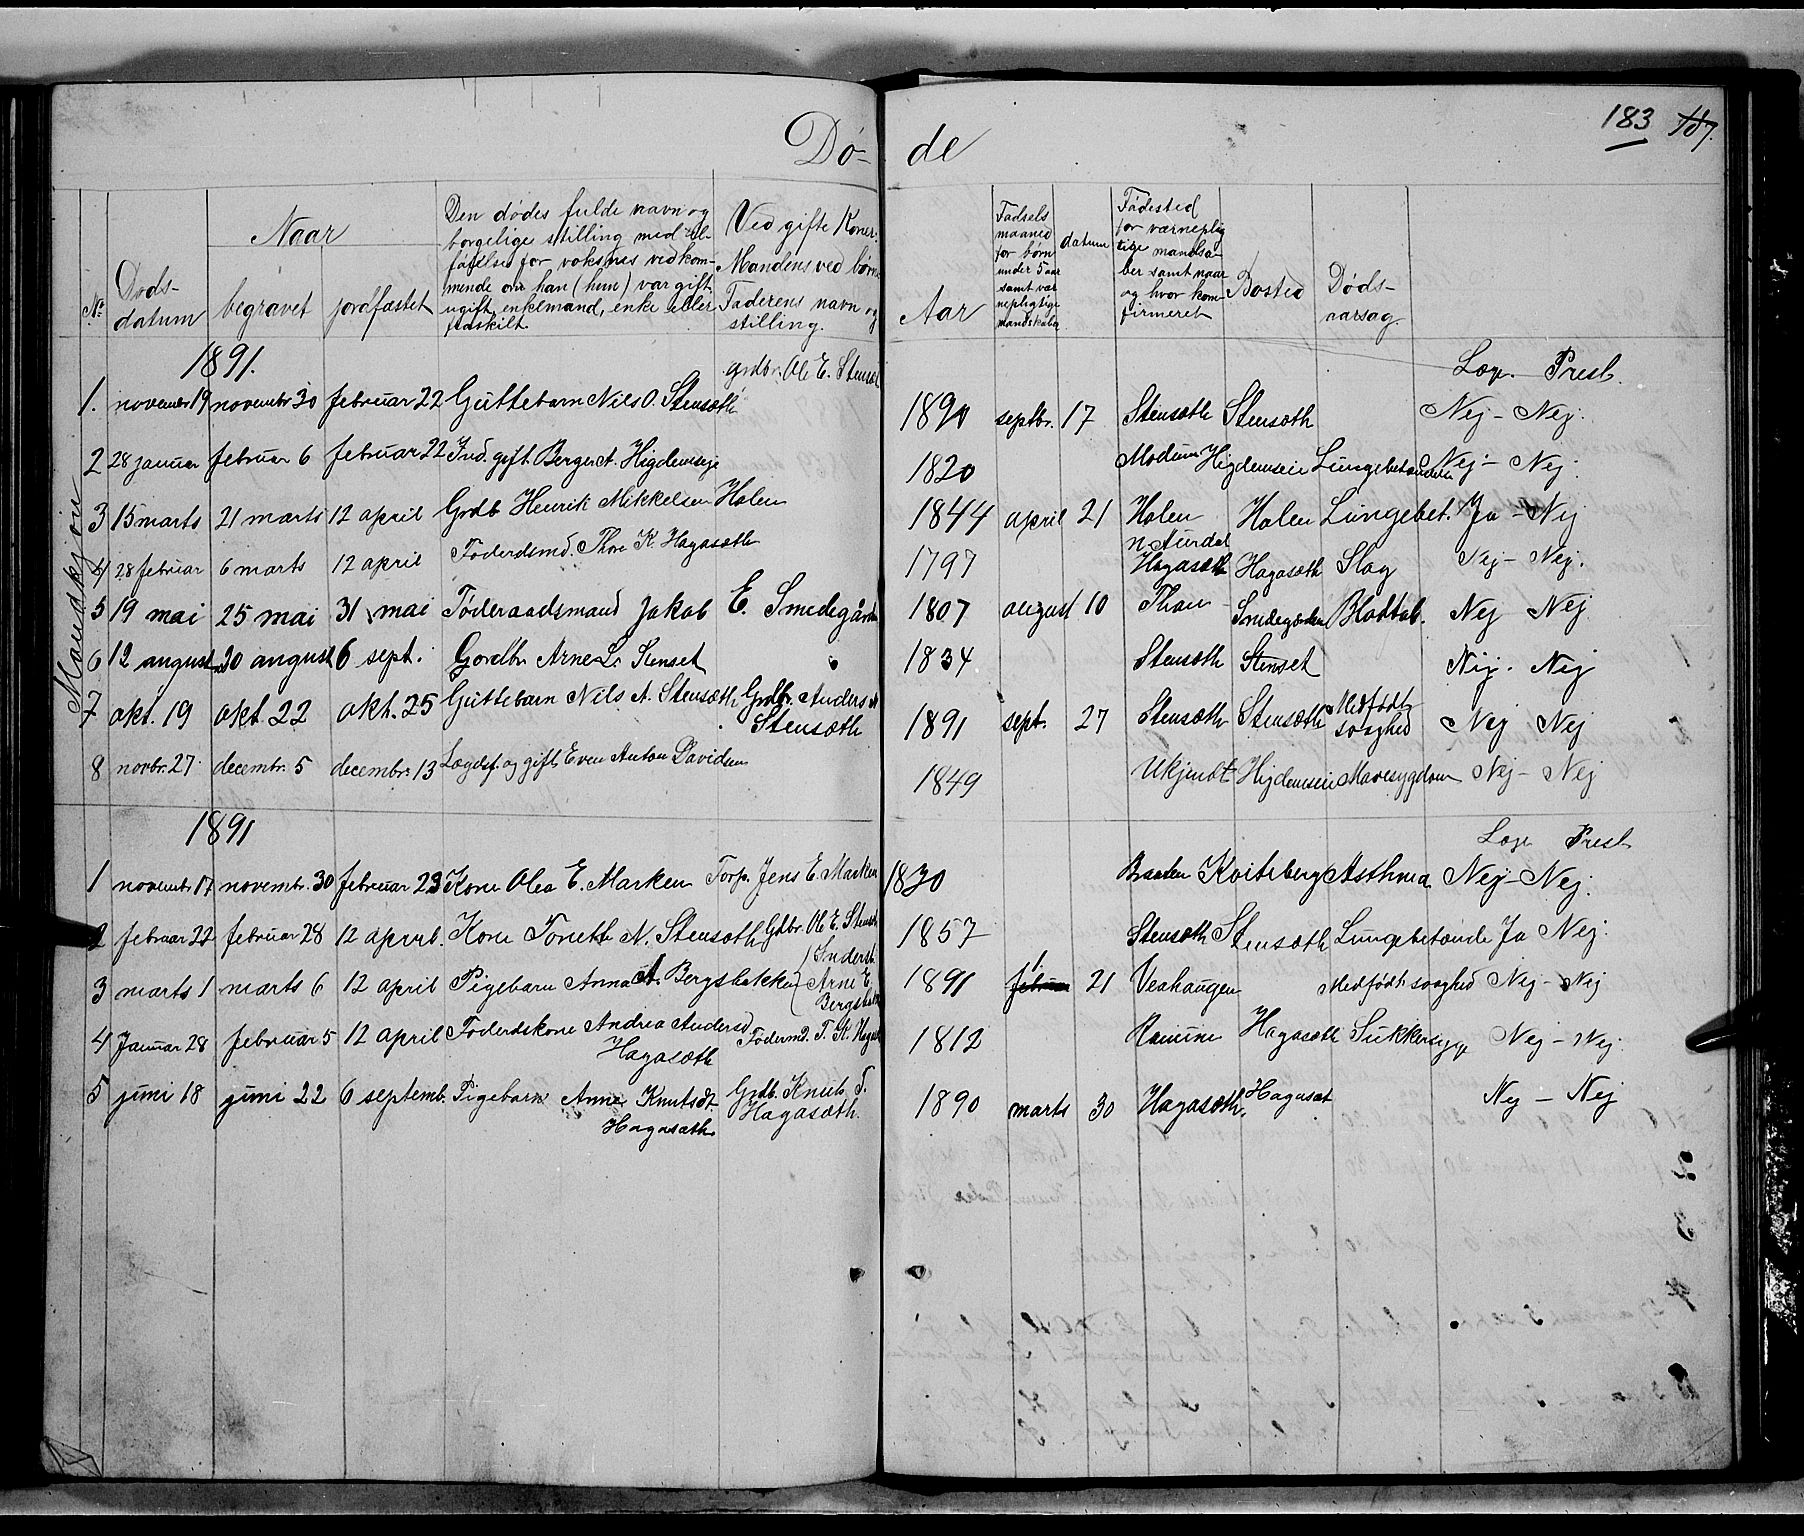 183 187.
Dø- de
No
Døds-
datum
Naar
begravet
jordfæstet
Den dødes fulde navn og
borgelige stilling med til-
føielse for voksnes vedkom-
mende om han (hun) var gift,
ugift, enkemand, enke eller
fraskilt.
Ved gifte Koner
Mandens ved børn
Faderens navn og
stilling.
Aar
Fødsels
maaned
for børn
under 5 aar
samt vær
nepligtige
mandskaber
datum
Fødested
for værneplig
tige mandska-
ber samt naar
og hvor kon-
firmeret
Bosted
Døds-
aarsag.
Mandkjøn
1891. Læge. Presb.
1. novembr 19 novembr 30 februar 22 Guttebarn Nils O. Stensæth grdbr. Ole E. Stensæt 1890 septbr. 17 Stensæth Stensæth Nej - Nej.
2 28 januar februar 6 februar 22 Ind. gift Berger A. Higdemseje 1820 Modum Higdemseie Lungebetændelse Nej - Nej.
3 15 marts 21 marts 12 april Grdb Henrik Mikkelsen Holen 1844 april 21 Holen Holen Lungebet. Ja - Nej
4 28 februar 6 marts 12 april Føderdsmd. Thore K. Hagasæth 1797 n. Aurdal
Hagasæth Hagasæth Slag Nej - Nej.
5 19 mai 25 mai 31 mai Føderaadsmand Jakob E. Smedegården 1807 august 10 Thon Smedegården Blodtab. Nej Nej
6 12 august 20 august 6 sept. Gordbr Arne L. Stenset 1834 Stensæth Stenset Nej. Nej
7 okt. 19 okt. 22 okt. 25 Guttebarn Nils A. Stensæth Grdb. Anders
Stensæth 1891 sept. 27 Stensæth Stensæth Medfødt
svaghed Nej Nej
8 novbr. 27 decembr. 5 decembr. 13 Lægdsf. og gift Even Anton Davidsen 1849 Ukjendt Higdemseie Mavesygdom Nej - Nej
1891 Læge Presb
1 novembr 17 novembr. 30 februar 23 Kone Olea E. Marken Torp. Jens E. Marken 1830 Braaten Kviteberg Asthma Nej - Nej.
2 februar 22 februar 28 12 april. Kone Tonette N. Stensæth Gdbr. Ole E. Stensæth 1857 Stensæth Stensæth Lungebetænde Ja Nej.
3 marts 1 marts 6 12 april Pigebarn Anna A. Bergsbakken Inderst.
Arne E.
Bergsbakken 1891 februar 21 Veahaugen Medfødt svaghed Nej - Nej
4 Januar 28 februar 5 12 april Føderdskone Andrea Andersd
Hagasæth Födermd. T. K. Hagasæth 1812 Hagasæth Sukkersyge Nej - Nej.
5 juni 18 juni 22 6 septemb. Pigebarn Anne Knutsdt
Hagasæth Grdb. Knut T.
Hagasæth. 1890 marts 30 Hagasæth, Hagasæt Nej - Nej